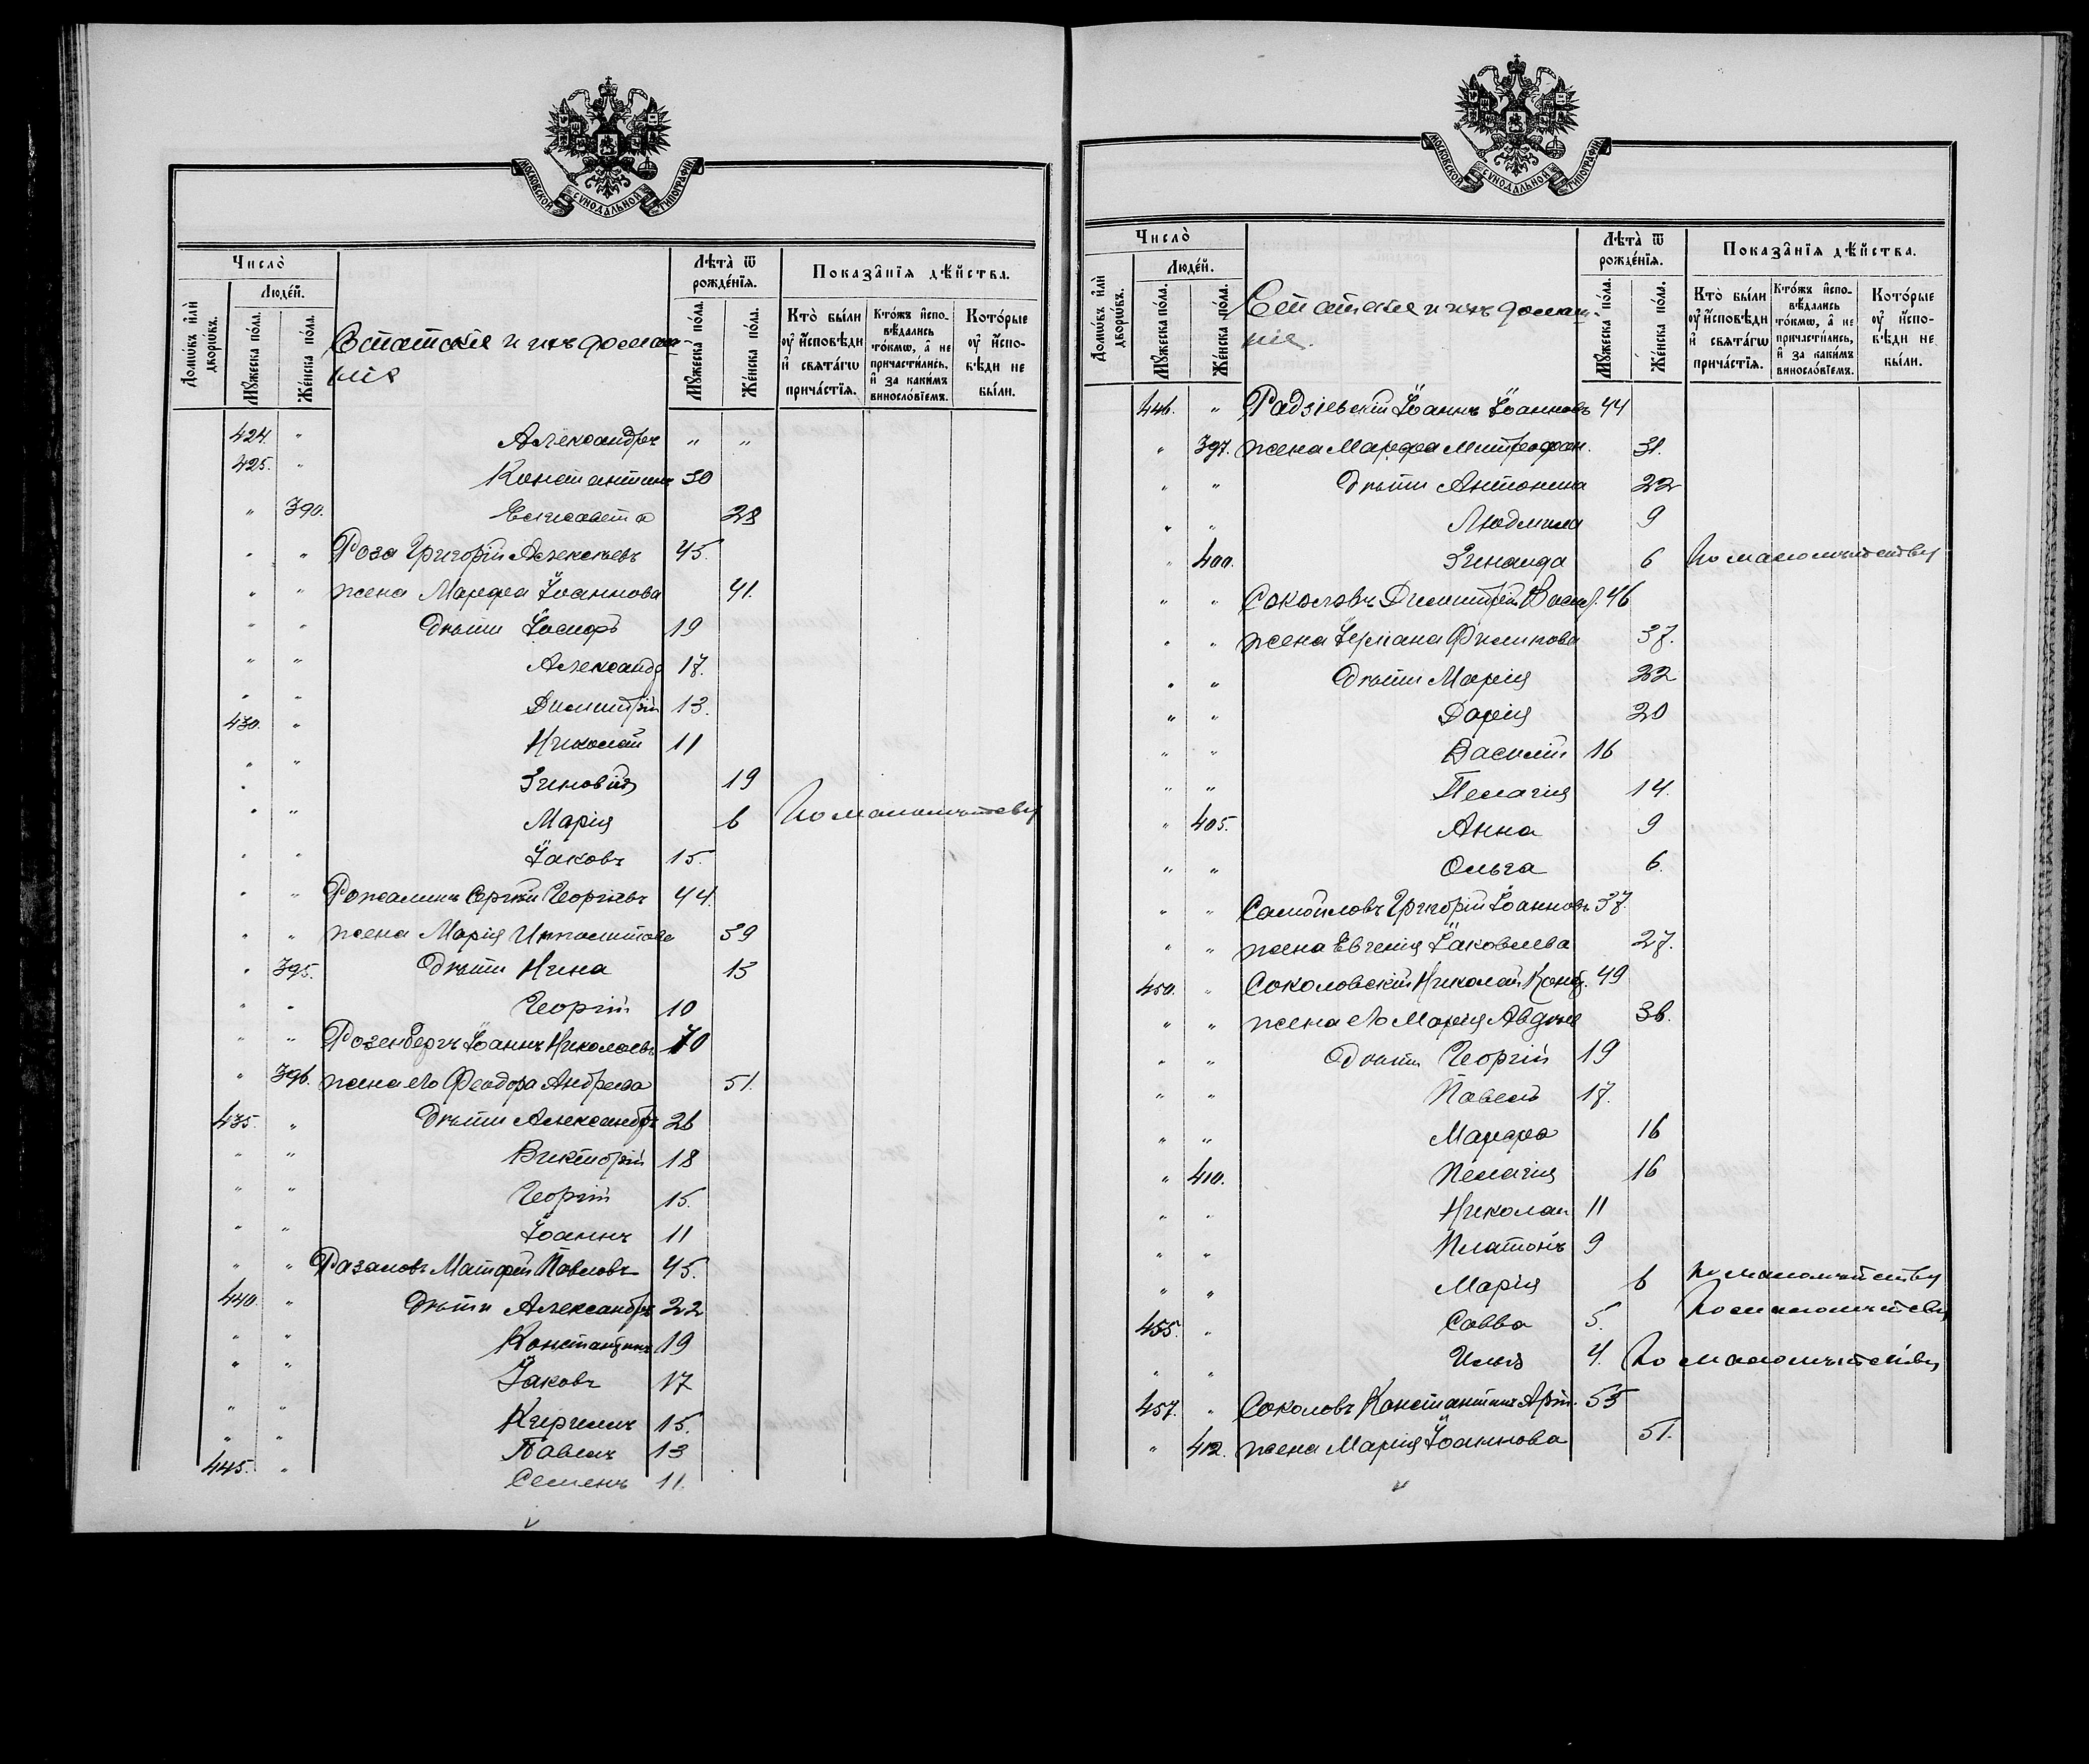 МОСКОВСКОЙ СѴНОДАЛЬНОЙ ТИПОГРАФІИ
Число̀
Домѡ́въ и҆лѝ дворѡ́въ.
Люде́й.
Мꙋ́жеска по́ла.
Же́нска по́ла.
Статскіе и ихъ домаш-
ніе
Лѣта̀ ѿ рожде́нїѧ.
Мꙋ́жеска по́ла.
Же́нска по́ла.
Показа̂нїѧ дѣ́йства.
Кто̀ бы́ли ᲂу҆ и҆спо́вѣди и҆ свѧта́гѡ прича́стїѧ.
Кто́жъ и҆спо-вѣ́дались то́кмѡ, а҆ не причасти́лись, и҆ за каки́мъ виносло́вїемъ.
Кото́рые ᲂу҆ и҆спо-вѣди не бы́ли.
424. " Александръ " "
425. " Константинъ 30
" 390. Елисавета 28
" " Роза Григорій Алексѣевъ 45.
" " жена Марѳа Іоаннова 41.
" " Дѣти Іосифъ 19
" " Александръ 17.
" " Димитрій 13.
430. " Николай 11
" " Зиновія 19
" " Марія 6 По малолѣтству
" " Іаковъ 15.
" " Рожалинъ Сергѣй Георгіевъ 44.
" " жена Марія Ипполитова 39
" 395. Дѣти Нина 13
" " Георгій 10
" " Розенбергъ Іоаннъ Николаевъ 70
" 396. жена его Ѳеодора Андреева 51.
435. " Дѣти Александръ 26
" " Викторій 18
" " Георгій 15.
" " Іоаннъ 11
" " Разановъ Матфей Павловъ 45.
440. " Дѣти Александръ 22
" " Константинъ 19
" " Іаковъ 17
" " Кириллъ 15.
" " Павелъ 13
445. " Семенъ 11.
МОСКОВСКОЙ СѴНОДАЛЬНОЙ ТИПОГРАФІИ
Число̀
Домѡ́въ и҆лѝ дворѡ́въ.
Люде́й.
Мꙋ́жеска по́ла.
Же́нска по́ла.
Статскіе и ихъ домаш-
ніе.
Лѣта̀ ѿ рожде́нїѧ.
Мꙋ́жеска по́ла.
Же́нска по́ла.
Показа̂нїѧ дѣ́йства.
Кто̀ бы́ли ᲂу҆ и҆спо́вѣди и҆ свѧта́гѡ прича́стїѧ.
Кто́жъ и҆спо-вѣ́дались то́кмѡ, а҆ не причасти́лись, и҆ за каки́мъ виносло́вїемъ.
Кото́рые ᲂу҆ и҆спо-вѣди не бы́ли.
446. " Радзіевскій Іоаннъ Іоанновъ 44
" 397. жена Марѳа Митрофан. 31.
" " Дѣти Антонина 22
" " Людмила 9
" 400. Зинаида 6 По малолѣтству
" " Соколовъ Димитрій Васил. 46
" " жена Іуліана Филипова 37.
" " Дѣти Марія 22
" " Дарія 20
" " Василій 16
" " Пелагія 14.
" 405. Анна 9
" " Ольга 6.
" " Самойловъ Григорій Іоанновъ 37.
" " жена Евгенія Іаковлева 27.
450. " Соколовскій Николай Конд. 49
" " жена его Марія Авдѣев 36.
" " Дѣти Георгій 19
" " Павелъ 17.
" " Марѳа 16
" 410. Пелагія 16
" " Николай 11
" " Платонъ 9
" " Марія 6 По малолѣтству
455. " Савва 5. По малолѣтству
" " Илья 4. По малолѣтству
457. " Соколовъ Константинъ Арт. 53
" 412. жена Марія Іоаннова 51.